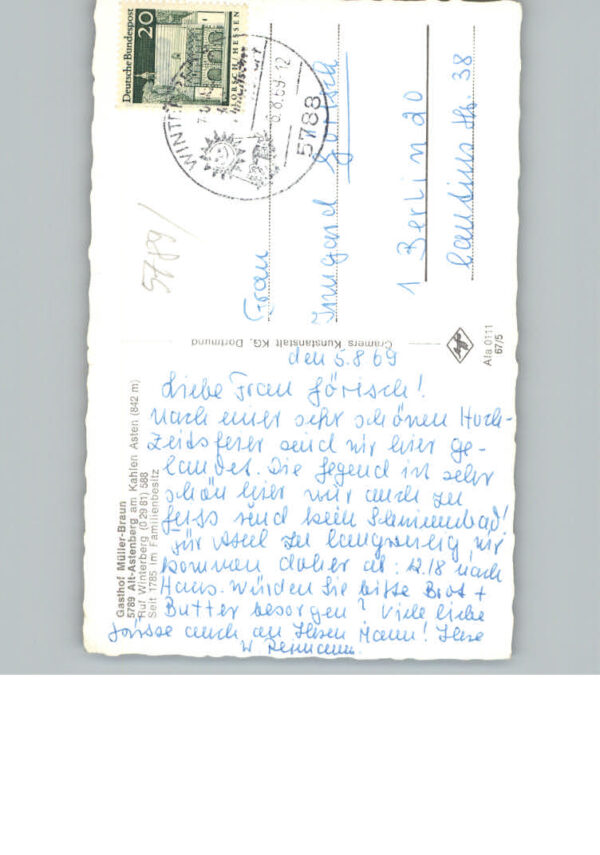 Deutsche Bundespost
20
LORSCH/HESSEN
WINTE
6.8.69-12
5788
5789/
Frau
Irmgard Görisch
1 Berlin 20
Cautius Str. 38
Cramers Kunstanstalt KG, Dortmund
Afa 0111
67/5
Gasthof Müller-Braun
5789 Alt-Astenberg am Kahlen Asten (842 m)
Ruf Winterberg (0 29 81) 588
Seit 1785 im Familienbesitz
den 5.8.69
Liebe Frau Görisch!
Nach einer sehr schönen Hoch-
zeitsfeier sind wir hier ge-
landet. Die Gegend ist sehr
schön hier nur auch zu
Fuss und kein Schwimmbad!
Für zu langweilig, wir
kommen daher 12.18 nach
Haus. Würden Sie bitte Brot +
Butter besorgen? Viele liebe
Grüsse auch an Ihren Mann! Ihre